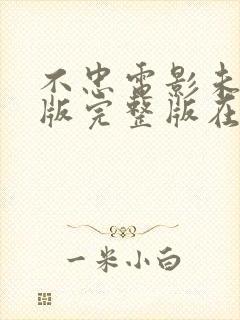 不忠电影未
版完整版在
一米小白